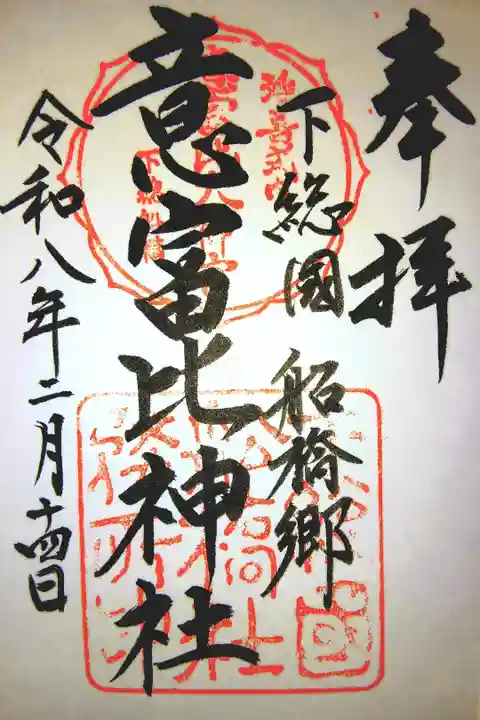 奉拝
下総國 船橋郷
意富比神社
令和八年二月十四日